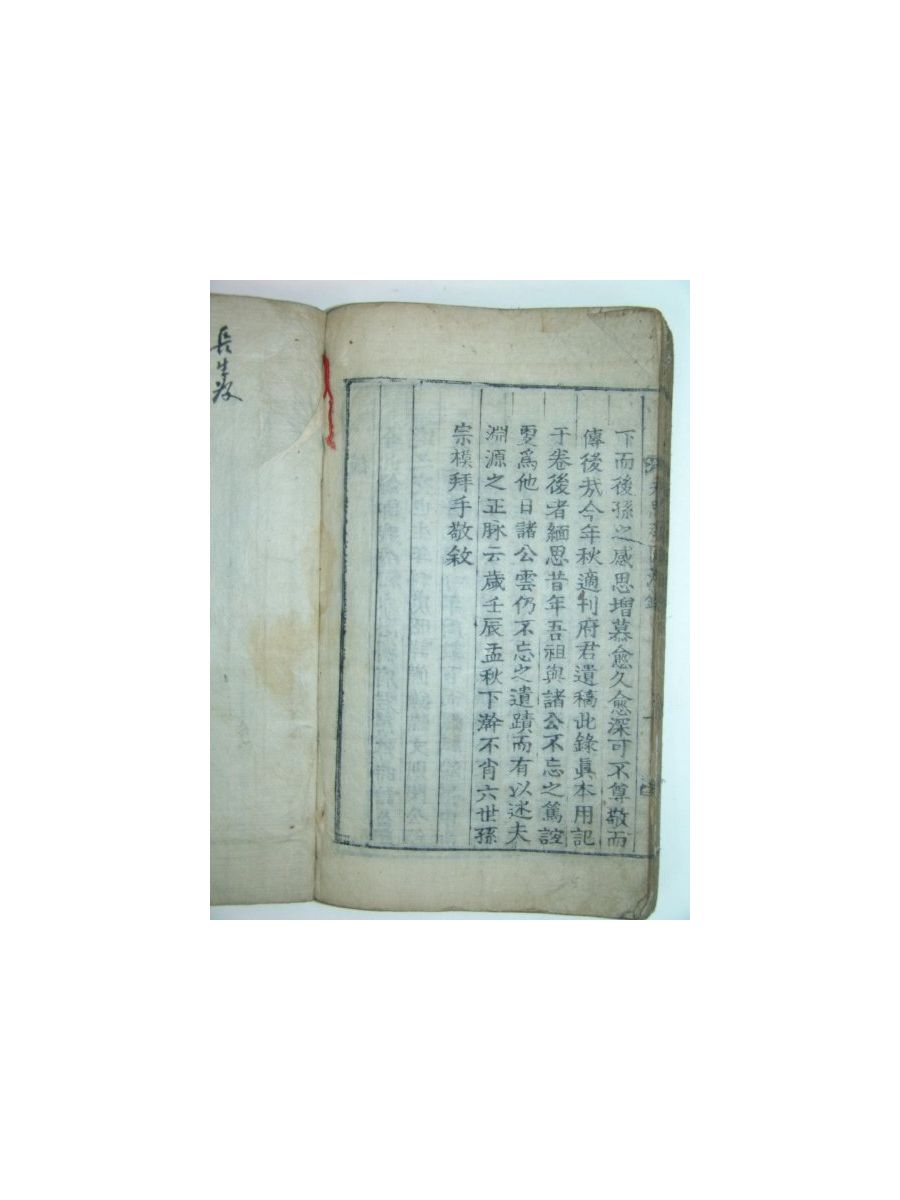 下而後孫之感思增慕愈久愈深可不尊敬而
傳後㢤今年秋適刊府君遺稿此錄眞本用記
于卷後者緬思昔年吾祖與諸公不忘之篤誼
更爲他日諸公雲仍不忘之遺蹟而有以迷夫
淵源之正脉云歲壬辰孟秋下澣不肖六世孫
宗模拜手敬敘
長生殿